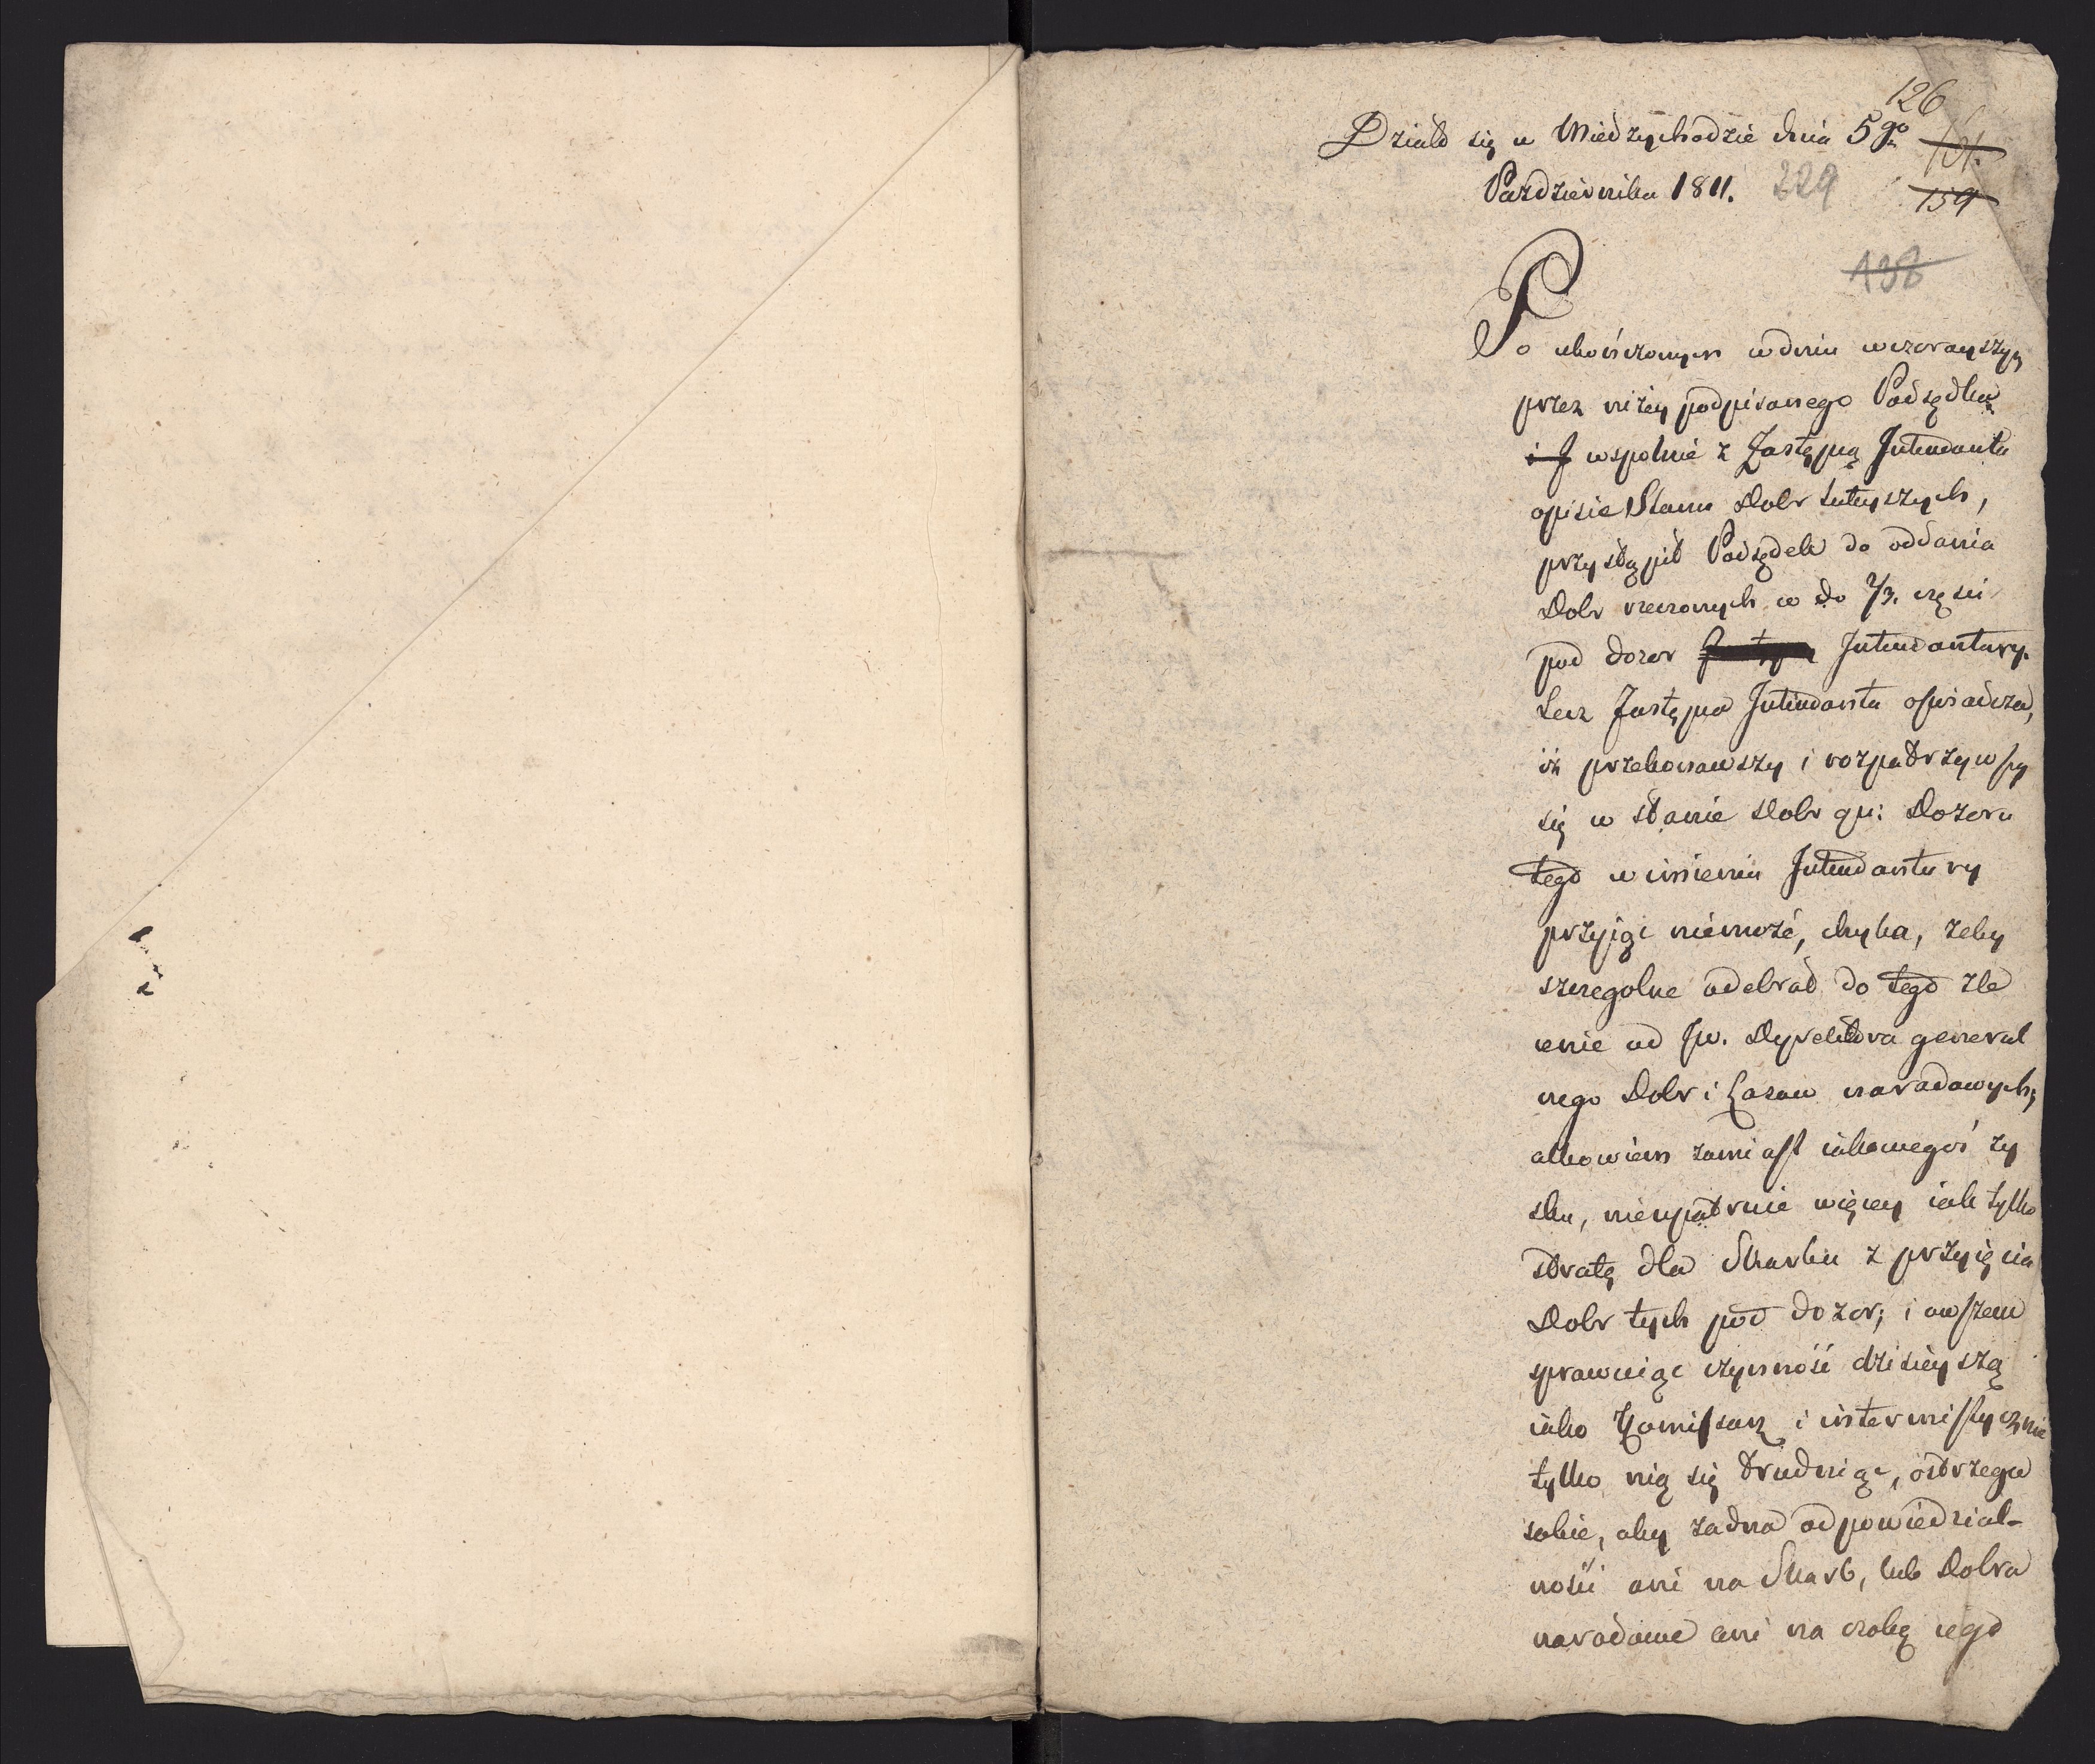 126
Działo się w Międzychodzie dnia 5go
Pazdziernika 1811. 229
159
138
Po ukończonym w dniu wczorayszym
przez niżey podpisanego Podsędka
i J wspolnie z Zastępcą Intendanta
opisie Stanu Dobr tuteyszych,
przystąpił Podsędek do oddania
Dobr rzeczonych w do 2/3. części
pod dozor Intendantury.
Lecz Zastępca Intendanta oświadcza,
iż przekonawszy i rozpatrzywszy
się w stanie Dobr qu: Dozoru
tego w imieniu Intendantury
przyjąc niemoże, chyba, zeby
szczegolne odebrał do tego zle
cenie od Jw. Dyrektora general
nego Dobr i Lasow narodowych;
albowiem zamiast iakowegoś zy
sku, nieupatruie więcey iak tylko
stratę dla Skarbu z przyięcia
Dobr tych pod dozor; i owszem
sprawuiąc czynność dzisieyszą
iako Komissarz i intermistycznie
tylko nią się trudniąc, ostrzega
sobie, aby żadna odpowiedzial-
ności ani na Skarb, lub Dobra
narodowe ani na osobę iego